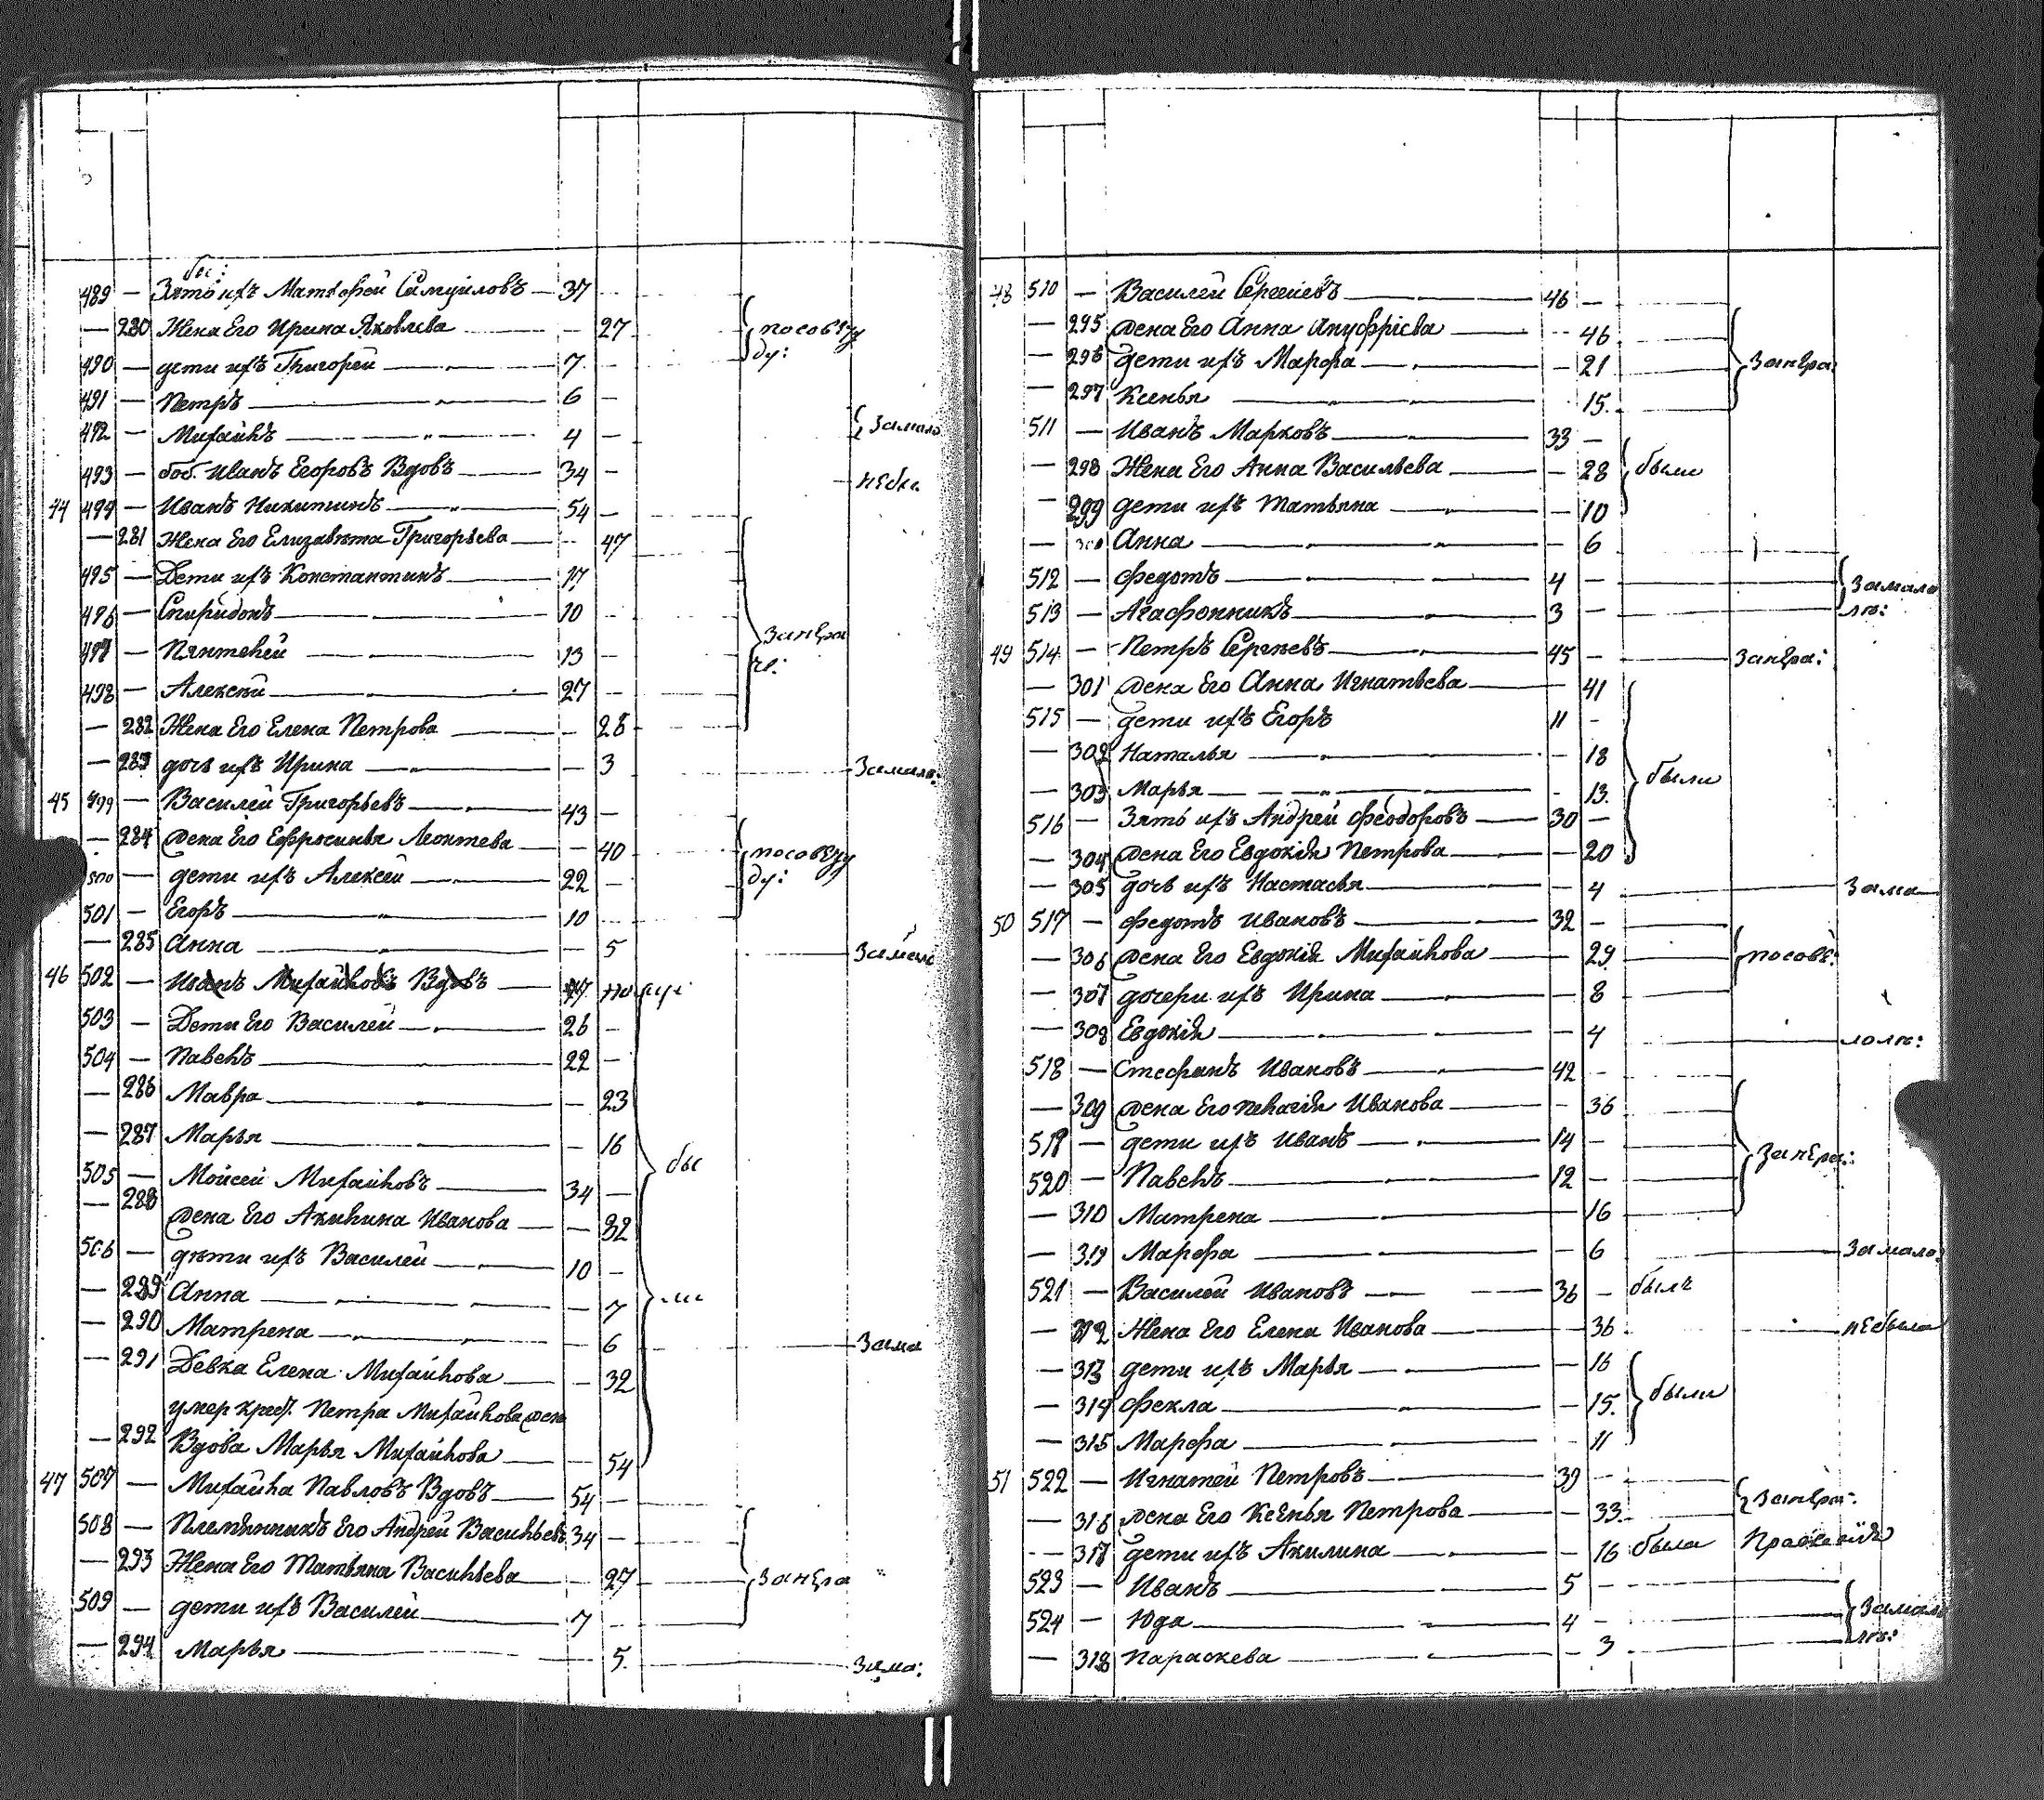 бы:
489 — Зять ихъ Матѳей Самуиловъ — 37
— 280 Жена Его Ирина Яковлева — 27 посовѣту
490 — дети ихъ Григорей — 7 ду:
491 — Петръ — 6 —
492 — Михаилъ — 4 — Замало
493 — боб. Иванъ Егоровъ Вдовъ — 34 —
44 494 — Иванъ Никитинъ — 54 —
— 281 Жена Его Елизавѣта Григорьева — 47
495 — Дети ихъ Константинъ — 17
496 — Спиридонъ — 10
497 — Пянтелей — 13 —
498 — Алексей — 27 —
— 282 Жена Его Елена Петрова — 28
— 283 дочь ихъ Ирина — 3 Замало:
45 499 — Василей Григорьевъ — 43 —
— 284 жена Его Ефросинья Леонтева — 40
500 — дети ихъ Алексей — 22 — ду:
501 — Егоръ — 10
— 285 Анна — 5
46 502 — Иванъ Михайловъ Вдовъ — 47
503 — Дети Его Василей — 26 —
504 — Павелъ — 22 —
— 286 Мавра — 23
— 287 Марья — 16
505 — Мойсей Михайловъ — 34 — бы
— 288 жена Его Акилина Иванова — 32
506 — дѣти ихъ Василей — 10 —
— 289 Анна — 7 ли
— 290 Матрена — 6 Зама
— 291 Девка Елена Михайлова — 32
умер крест. Петра Михайлова жена
— 292 Вдова Марья Михайлова — 54
47 507 — Михайла Павловъ Вдовъ — 54 —
508 — Племянникъ Его Андрей Васильевъ 34 —
— 293 Жена Его Татьяна Васильева — 27
509 — дети ихъ Василей — 7
— 294 Марья — 5. Зама:
48 510 — Василей Сергеевъ — 46 —
— 295 жена Его Анна Ануфріева — 46
— 296 дети ихъ Марфа — 21
— 297 Ксенья — 15.
511 — Иванъ Марковъ — 33 —
— 298 Жена Его Анна Васильева — 28 были
— 299 дети ихъ Татьяна — 10
— 300 Анна — 6
512 — Федотъ — 4 — Замало
513 — Агафонникъ — 3 — лѣ:
49 514 — Петръ Сергѣевъ — 45 —
— 301 жена Его Анна Игнатьева — 41
515 — дети ихъ Егоръ 11 —
— 302 Наталья — 18
— 303 Марья — 13. были
516 — Зять ихъ Андрей Феодоровъ — 30 —
— 304 жена Его Евдокія Петрова — 20
— 305 дочь ихъ Настасья — 4 Зама
50 517 — Федотъ Ивановъ — 32 —
— 306 жена Его Евдокія Михайлова — 29. посовѣ:
— 307 дочери ихъ Ирина — 8
— 308 Евдокія — 4
518 — Стефанъ Ивановъ — 42 —
— 309 жена Его Пелагія Иванова — 36
519 — дети ихъ Иванъ — 14 —
520 — Павелъ — 12 —
— 310 Матрена — 16
— 311 Марфа — 6 Замало:
521 — Василей Ивановъ — 36 — былъ
— 312 Жена Его Елена Иванова — 36 небыла
— 313 дети ихъ Марья — 16
— 314 Фекла — 15. были
— 315 Марфа — 11
51 522 — Игнатей Петровъ — 39 —
— 316 жена Его Ксенья Петрова — 33
— 317 дети ихъ Акилина — 16 была
523 — Иванъ — 5 —
524 — Юда — 4 — Замало
— 318 Параскева — 3 лѣ: